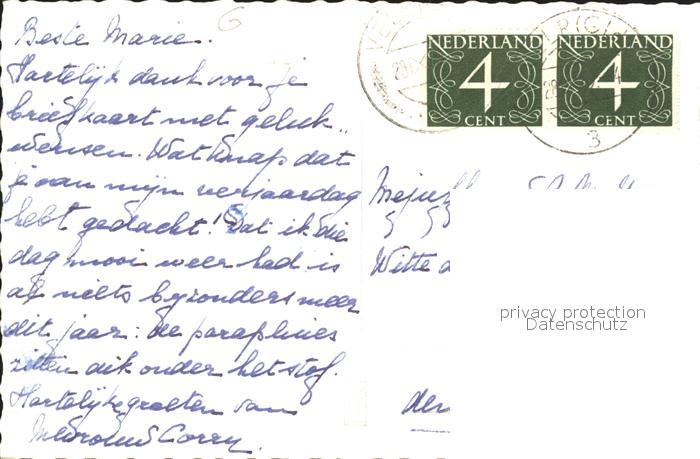 Beste Marie.
Hartelijk dank voor je
briefkaart met geluk„
wensen. Wat knap dat
je aan mijn verjaardag
hebt gedacht! Dat ik die
dag mooi weer had is
al niets byzonders meer
dit jaar: de parapluies
zitten dik onder het stof.
Hartelijke groeten van
Corry.
NEDERLAND
4
CENT
NEDERLAND
4
CENT
3
Mejuff
Witte
privacy protection
Datenschutz
den